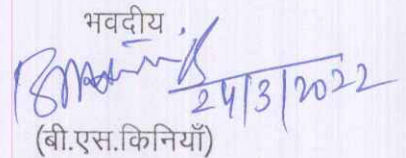 भवदीय
24/3/2022
(बी.एस.किनियाँ)